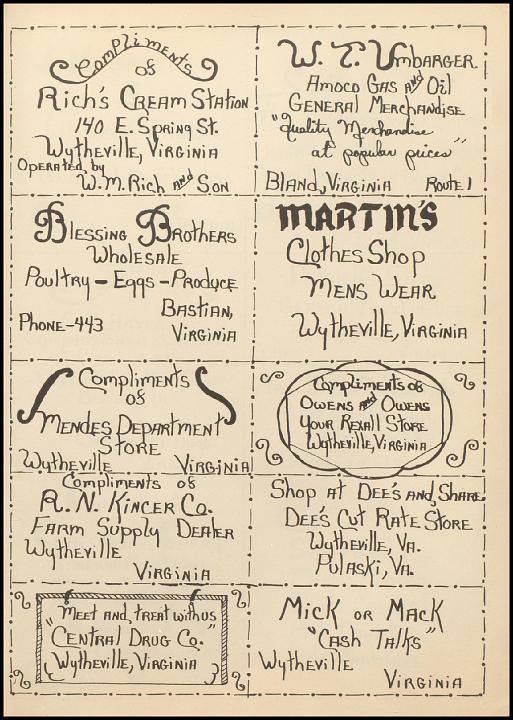 Compliments
of
Rich's Cream Station
140 E. Spring St.
Wytheville, Virginia
Operated by
W. M. Rich and Son
W. T. Umbarger
Amoco Gas and Oil
General Merchandise
"Quality Merchandise
at popular prices"
Bland, Virginia Route 1
Blessing Brothers
Wholesale
Poultry - Eggs - Produce
Bastian,
Phone-443
Virginia
Martin's
Clothes Shop
Mens Wear
Wytheville, Virginia
Compliments
of
Mendes Department
Store
Wytheville Virginia
Compliments of
Owens and Owens
Your Rexall Store
Wytheville, Virginia
Compliments of
R. N. Kincer Co.
Farm Supply Dealer
Wytheville
Virginia
Shop at Dee's and Share
Dee's Cut Rate Store
Wytheville, Va.
Pulaski, Va.
"Meet and treat with us"
Central Drug Co.
Wytheville, Virginia
Mick or Mack
"Cash Talks"
Wytheville
Virginia